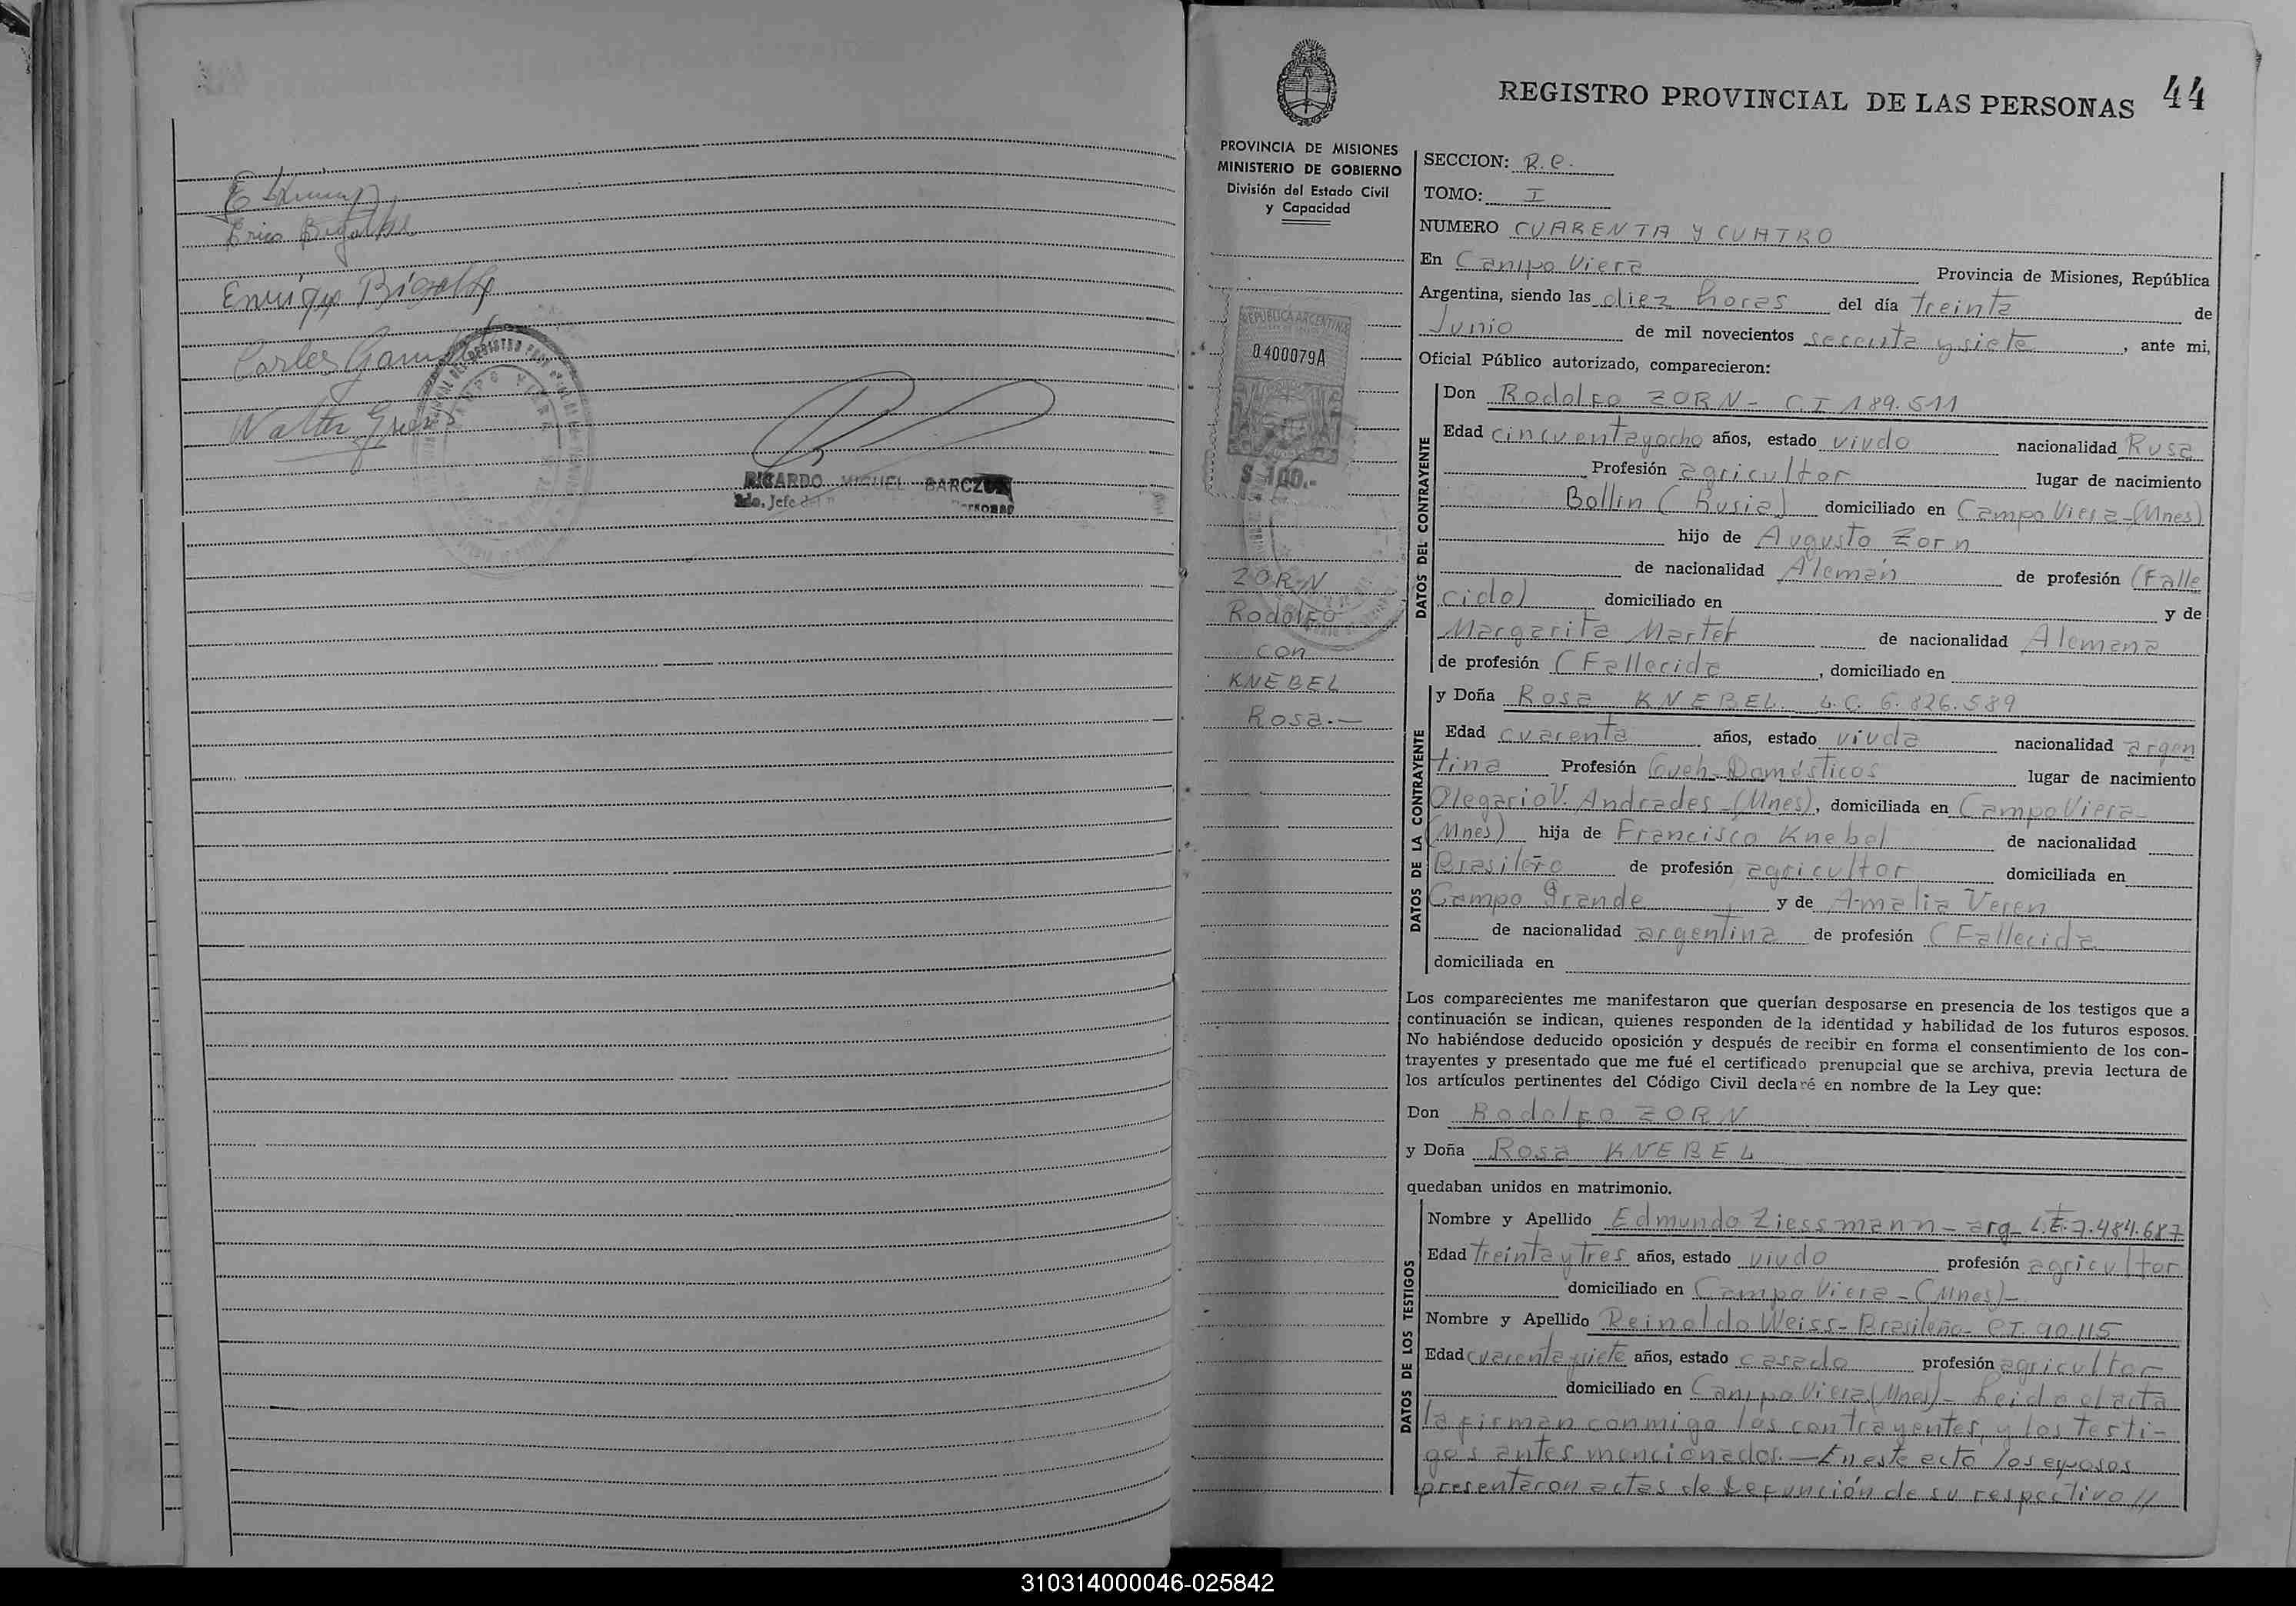 Enrique Bigalke
Carlos
Walter
RICARDO MIGUEL BARCZUK
2do. Jefe del
REGISTRO PROVINCIAL DE LAS PERSONAS 44
PROVINCIA DE MISIONES
MINISTERIO DE GOBIERNO
División del Estado Civil
y Capacidad
REPUBLICA ARGENTINA
0400079A
$ 100.-
ZORN
Rodolfo
con
KNEBEL
Rosa.-
SECCION: R.C.
TOMO: I
NUMERO CUARENTA Y CUATRO
En Campo Viera Provincia de Misiones, República
Argentina, siendo las diez horas del día treinta de
Junio de mil novecientos sesenta y siete, ante mi,
Oficial Público autorizado, comparecieron:
DATOS DEL CONTRAYENTE
Don Rodolfo ZORN - C.I 189.511
Edad cincuentayocho años, estado viudo nacionalidad Rusa
Profesión agricultor lugar de nacimiento
Bollin (Rusia) domiciliado en Campo Viera-(Mnes)
hijo de Augusto Zorn
de nacionalidad Alemán de profesión (Falle
cido) domiciliado en y de
Margarita de nacionalidad Alemana
de profesión (Fallecida, domiciliado en
DATOS DE LA CONTRAYENTE
y Doña Rosa KNEBEL. L.C. 6.826.589
Edad cuarenta años, estado viuda nacionalidad argen
tina Profesión Queh. Domésticos lugar de nacimiento
Olegario V. Andrades-(Mnes), domiciliada en Campo Viera-
(Mnes) hija de Francisco Knebel de nacionalidad
Brasileño de profesión agricultor domiciliada en
Campo Grande y de Amalia Veren
de nacionalidad argentina de profesión (Fallecida
domiciliada en
Los comparecientes me manifestaron que querían desposarse en presencia de los testigos que a
continuación se indican, quienes responden de la identidad y habilidad de los futuros esposos.
No habiéndose deducido oposición y después de recibir en forma el consentimiento de los con-
trayentes y presentado que me fué el certificado prenupcial que se archiva, previa lectura de
los artículos pertinentes del Código Civil declaré en nombre de la Ley que:
Don Rodolfo ZORN
y Doña Rosa KNEBEL
quedaban unidos en matrimonio.
DATOS DE LOS TESTIGOS
Nombre y Apellido Edmundo Ziessmann - arg- L.E. 7.484.687
Edad treinta y tres años, estado viudo profesión agricultor
domiciliado en Campo Viera - (Mnes)-
Nombre y Apellido Reinoldo Weiss-Brasileño- C.I. 90.115
Edad cuarenta y siete años, estado casado profesión agricultor
domiciliado en Campo Viera (Mnes)- Leida el acta
la firman conmigo los contrayentes, y los testi-
gos antes mencionados.- En este acto los esposos
presentaron actas de defunción de su respectivo //
310314000046-025842